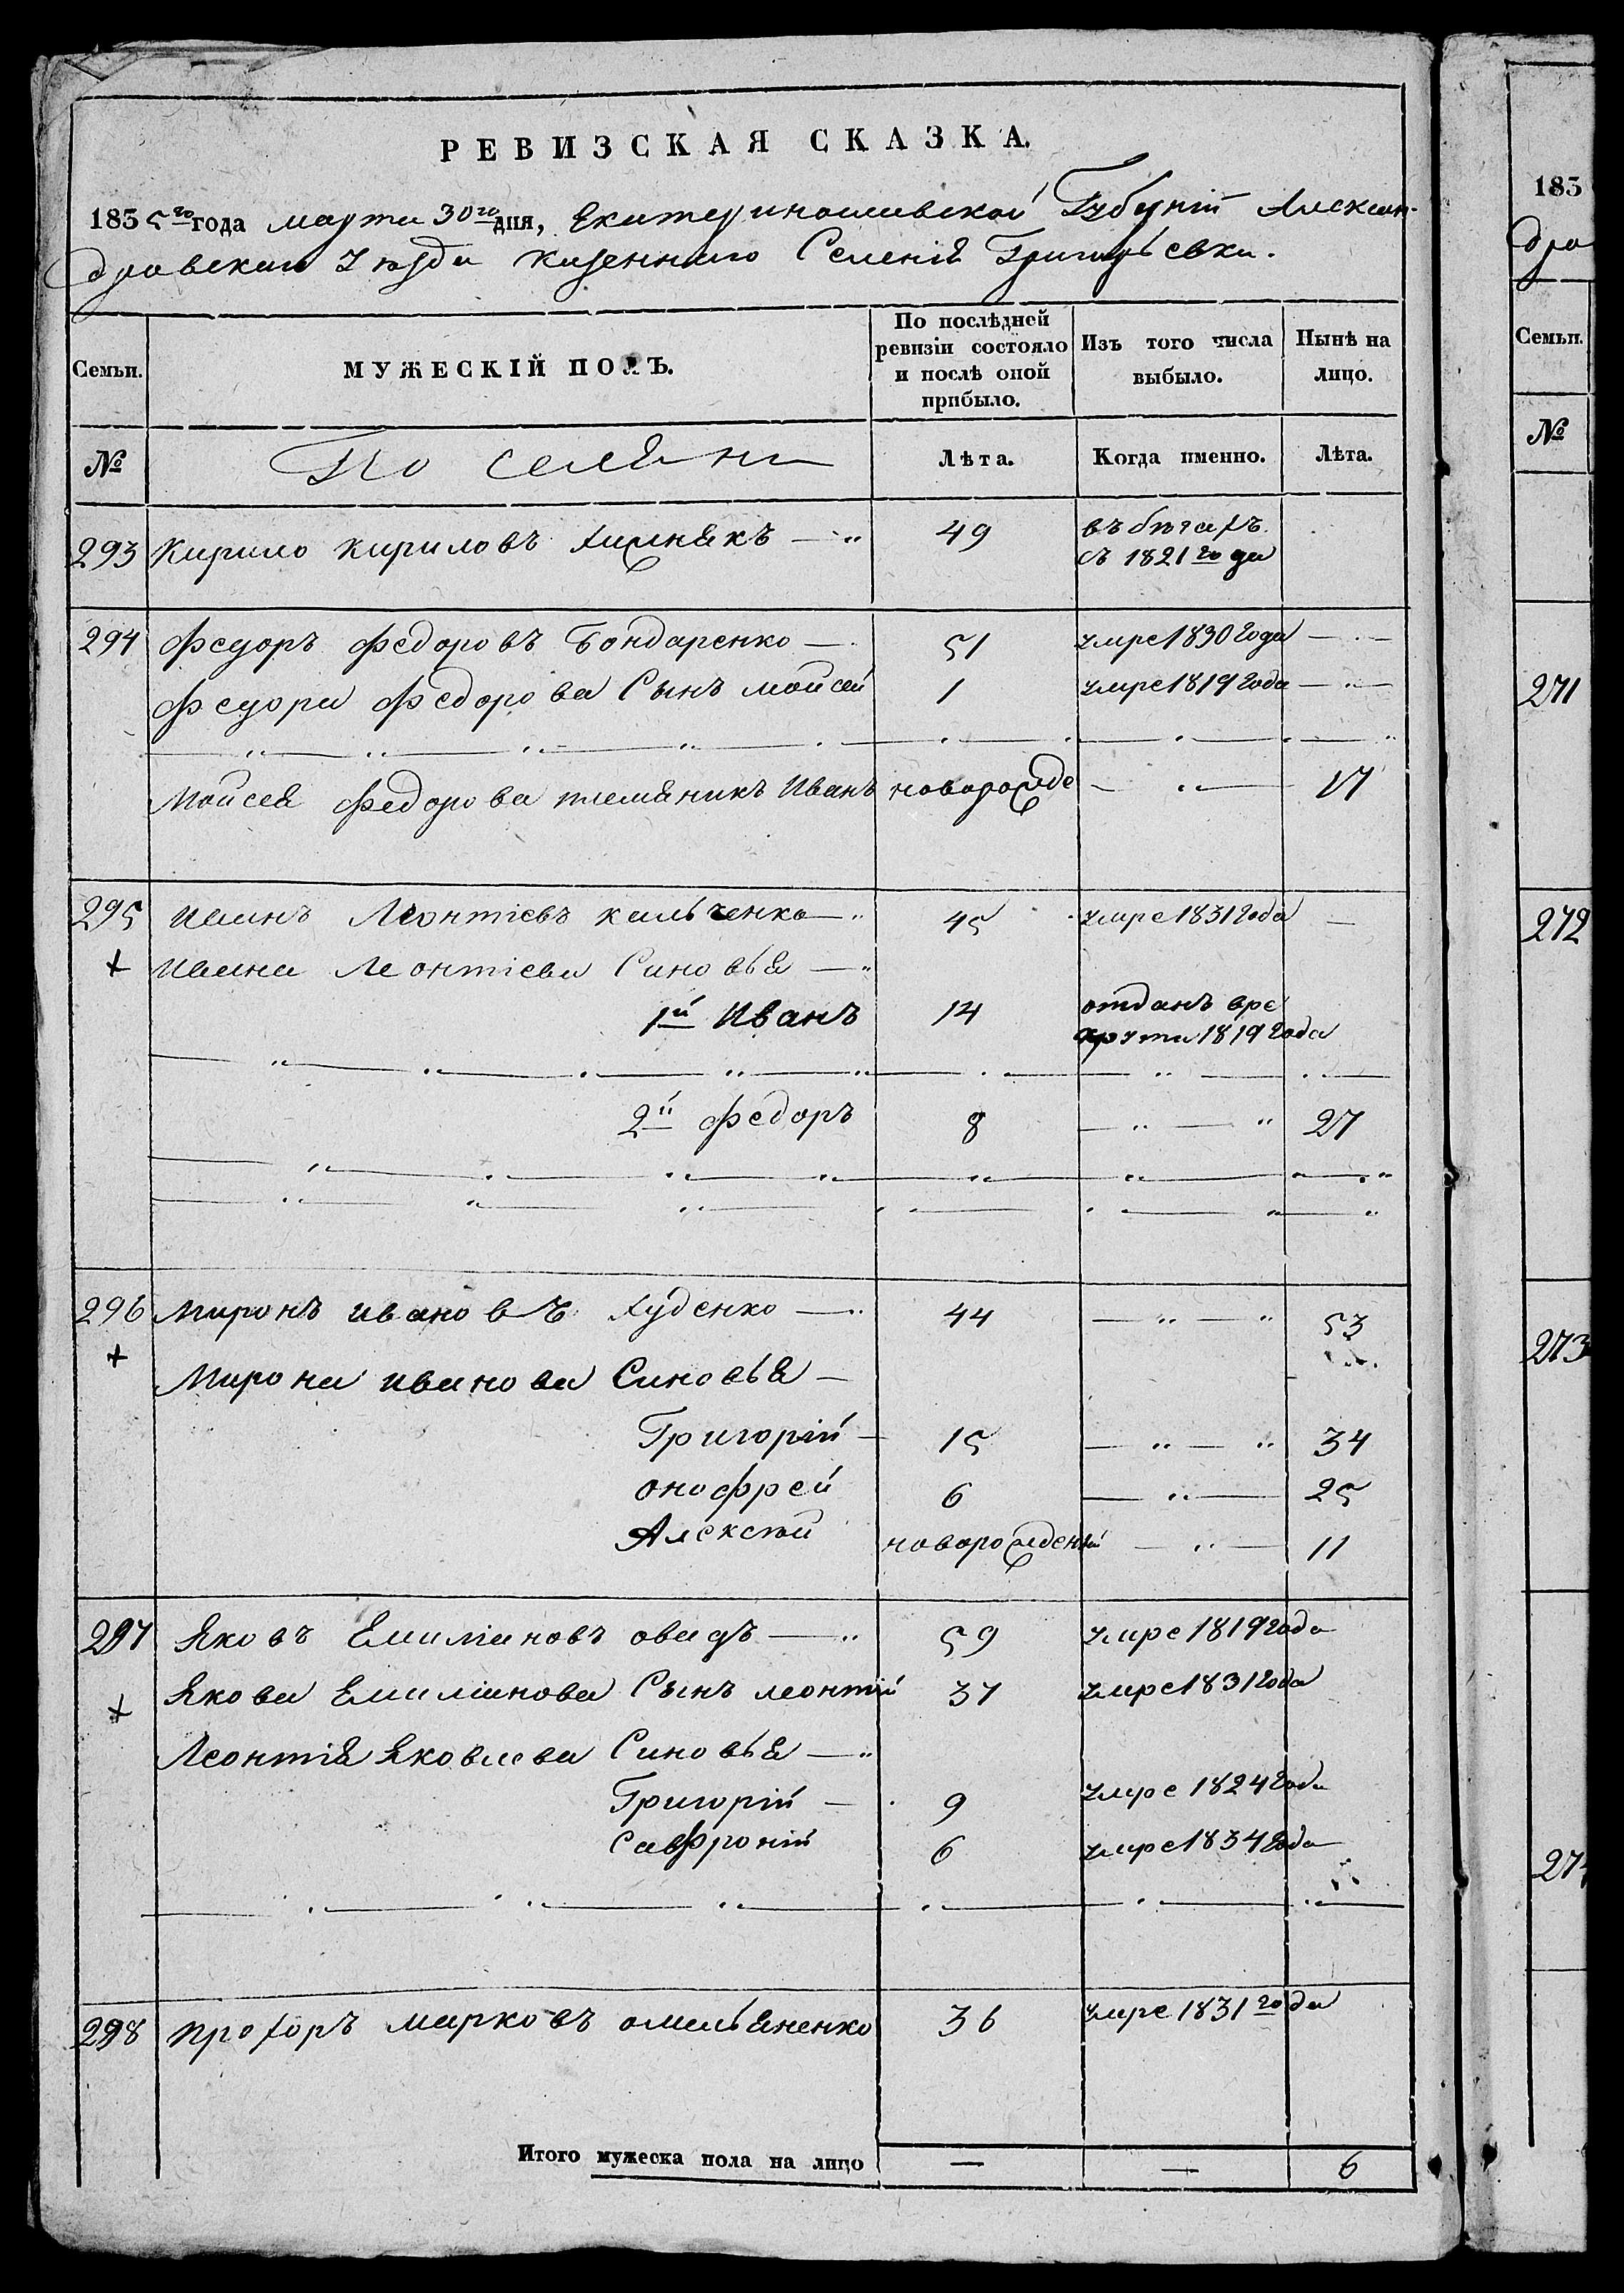 РЕВИЗСКАЯ СКАЗКА.
1835го года марта 30го дня, Екатеринославской Губерніи Алексан-
дровскаго Уѣзда казеннаго Селенія Григорьевки.
Семьи.
МУЖЕСКІЙ ПОЛЪ.
По послѣдней ревизіи состояло и послѣ оной прибыло.
Изъ того числа выбыло.
Нынѣ на лицо.
№
Поселяни
Лѣта.
Когда именно.
Лѣта.
293 Кирило Кириловъ 49 въ бѣгахъ
съ 1821го года
294 Федоръ Федоровъ Бондаренко 51 умре 1830 года
Федора Федорова Сынъ Мойсей 1 умре 1819 года
Мойсея Федорова племяникъ Иванъ новорожде 17
295 Иванъ Леонтіевъ Кальченко 45 умре 1831 года
+ Ивана Леонтіева Синовья
1й Иванъ 14 отданъ вре
крути 1819 года
2й Федоръ 8 27
296 Миронъ Ивановъ Худенко 44 53
+ Мирона Иванова Синовья
Григорій 15 34
Онофрей 6 25
Алексѣй новорожденый 11
297 Яковъ Емиліановъ Овадъ 59 умре 1819 года
+ Якова Емиліанова Сынъ Леонтій 37 умре 1831 года
Леонтія Яковлева Синовья
Григорій 9 умре 1824 года
Савфроній 6 умре 1834 года
298 Прохоръ Марковъ Омельяненко 36 умре 1831го года
Итого мужеска пола на лицо — — 6
183
дро
Семьи.
№
271
272
273
274